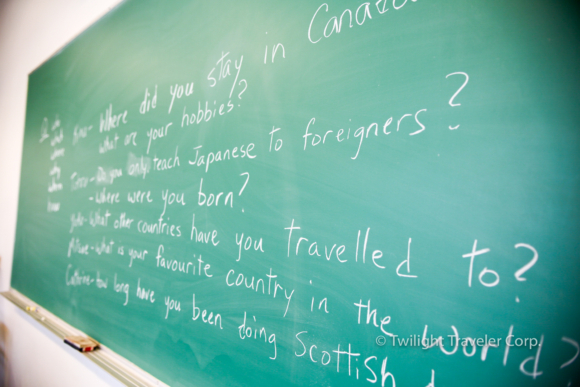 Where did you stay in Canada
what are your hobbies?
Do you only teach Japanese to foreigners?
- Where were you born?
- What other countries have you travelled to?
- what is your favourite country in the world?
Catherine - how long have you been doing Scottish
© Twilight Traveler Corp.